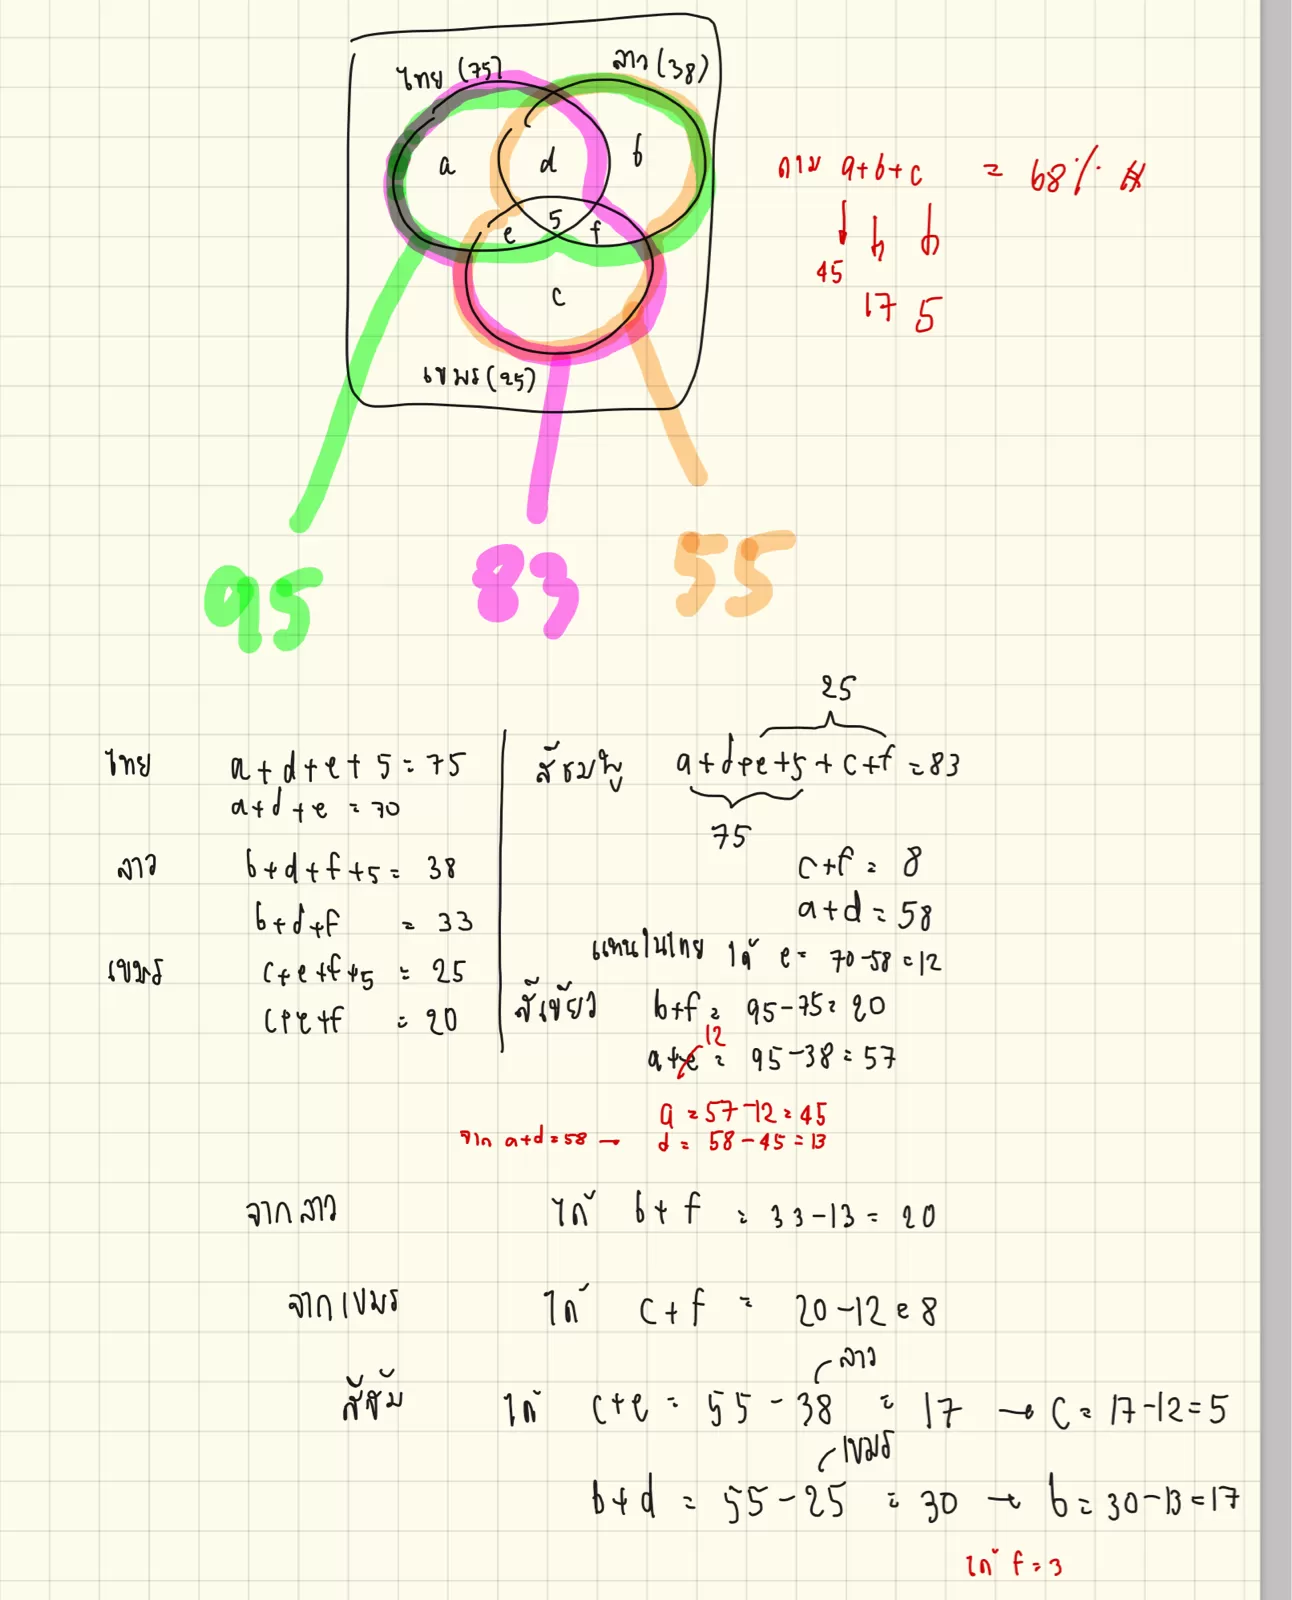 ไทย (75)
ลาว (38)
a
d
b
e
5
f
c
เขมร (25)
ถาม a+b+c = 68% #
45
17 5
95
83
55
25
ไทย a+d+e+5=75
a+d+e = 70
ลาว b+d+f+5= 38
b+d+f = 33
เขมร c+e+f+5 = 25
c+e+f = 20
สีชมพู a+d+e+5+c+f = 83
75
c+f = 8
a+d = 58
แทนในไทย ได้ e = 70-58 = 12
สีเขียว b+f = 95-75 = 20
12
a+e = 95-38 = 57
a = 57-12 = 45
จาก a+d=58 → d = 58-45 = 13
จากลาว ได้ b+f = 33-13 = 20
จากเขมร ได้ c+f = 20-12 = 8
ลาว
สีส้ม ได้ c+e = 55-38 = 17 → c = 17-12 = 5
เขมร
b+d = 55-25 = 30 → b = 30-13 = 17
ได้ f = 3